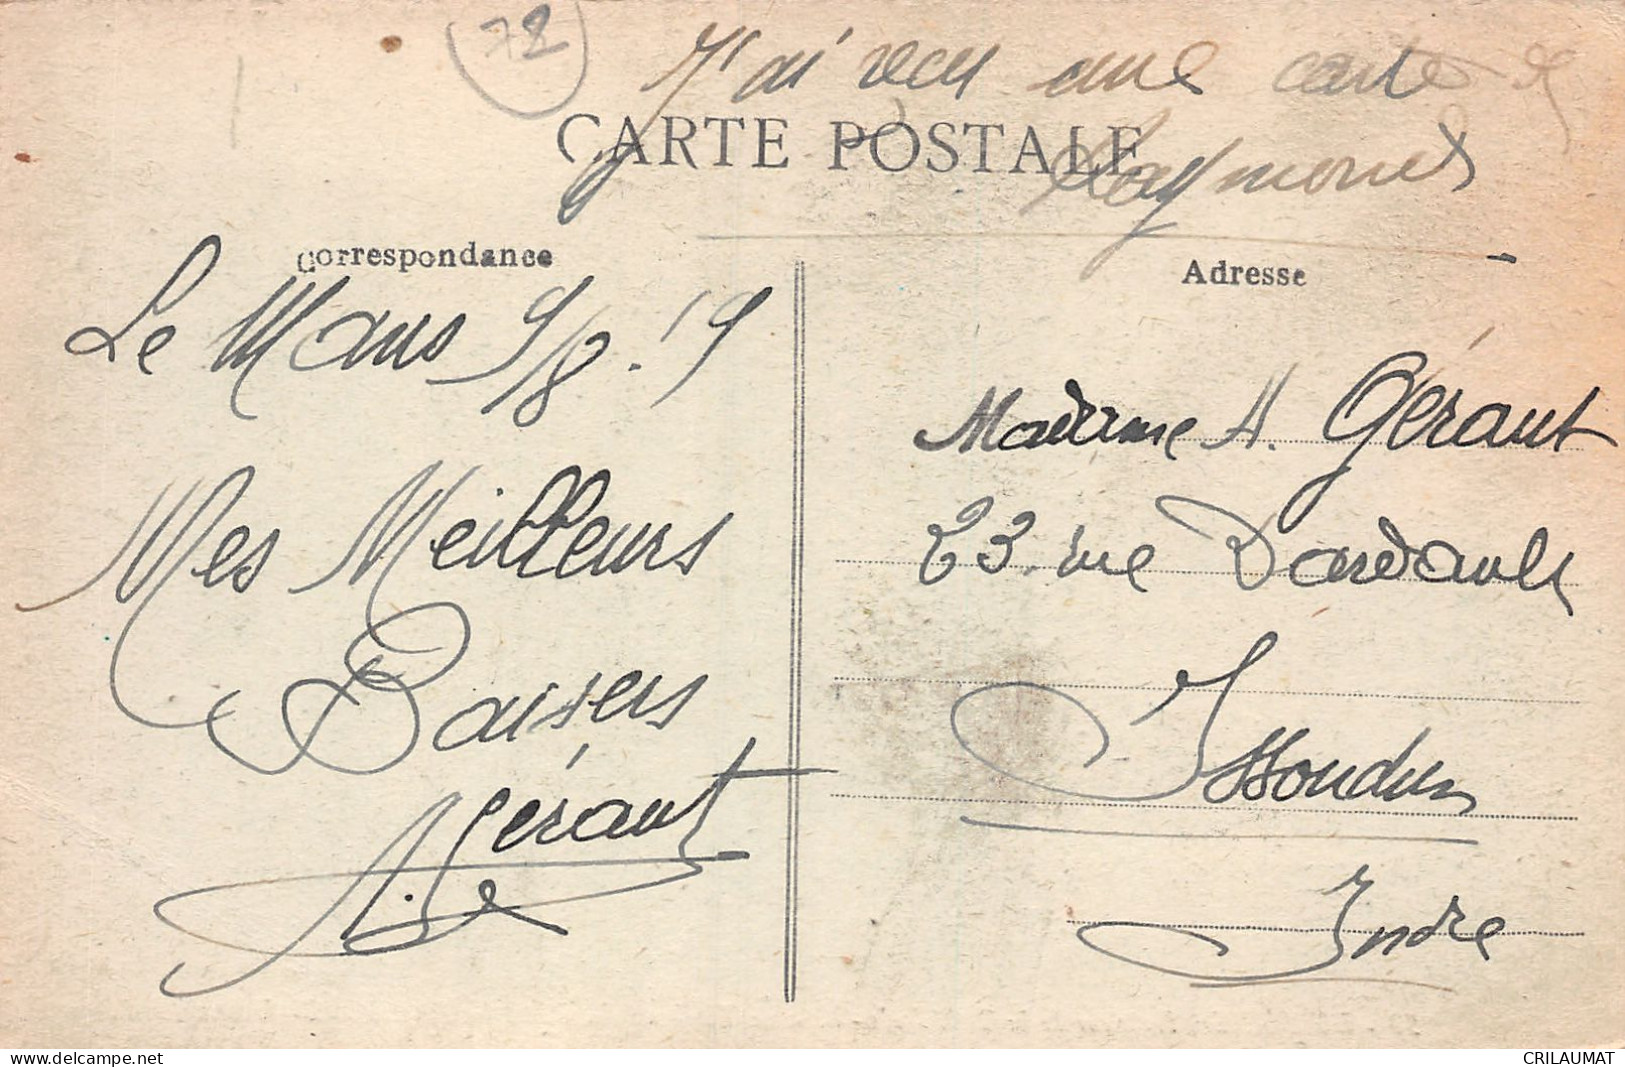 72
J'ai reçu une carte de
Raymond
CARTE POSTALE
Correspondance
Adresse
Le Mans 9/8.19
Mes Meilleurs
Baisers
A. Gérant
Madame A. Gérant
23. rue Dardault
Issoudun
Indre
www.delcampe.net
CRILAUMAT